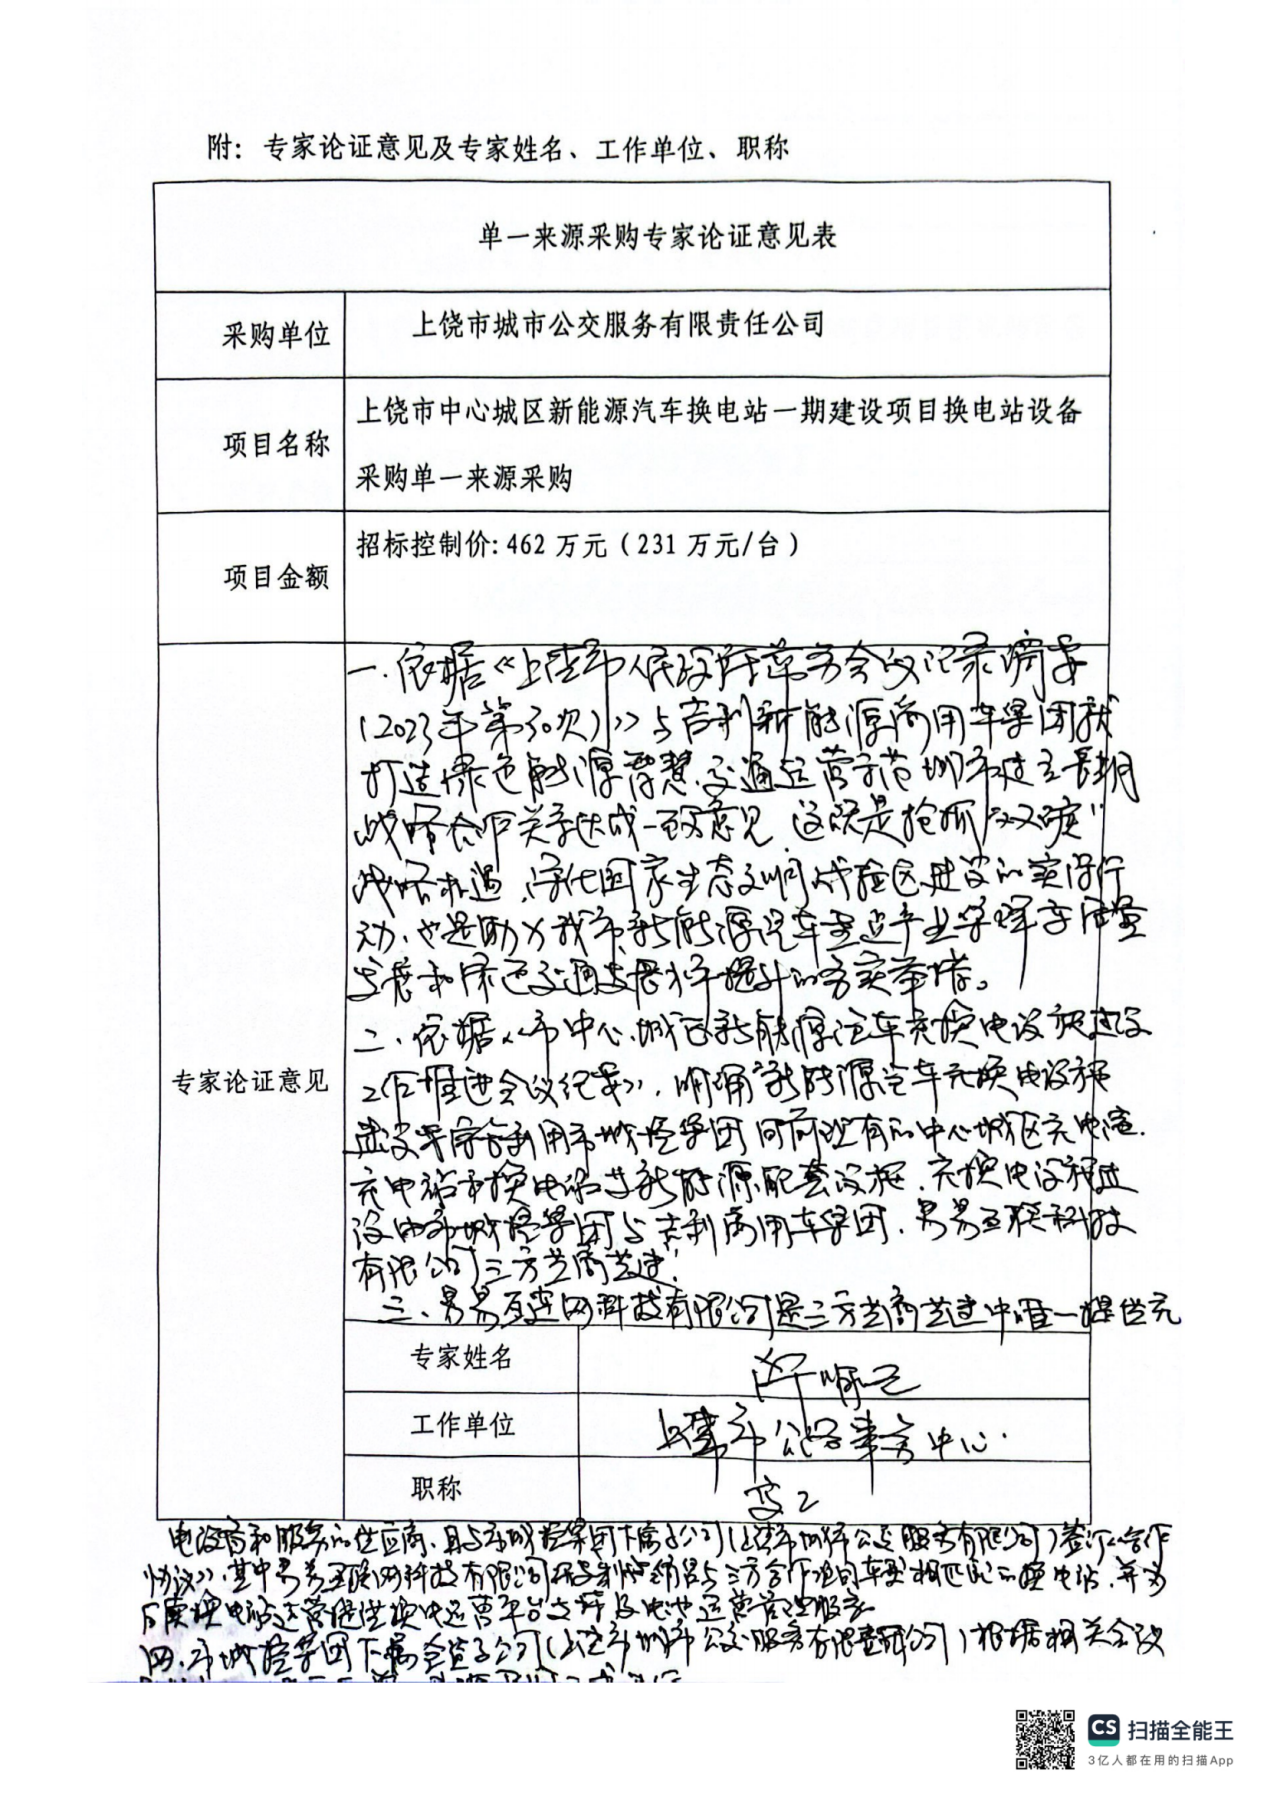 附：专家论证意见及专家姓名、工作单位、职称
单一来源采购专家论证意见表
采购单位
上饶市城市公交服务有限责任公司
项目名称
上饶市中心城区新能源汽车换电站一期建设项目换电站设备
采购单一来源采购
项目金额
招标控制价：462万元（231万元/台）
专家论证意见
一、依据《上饶市人民政府常务会议记录摘要
（2023年第30次）》与吉利新能源商用车集团就
打造绿色能源智慧交通运营示范城市建立长期
战略合作关系达成一致意见，这既是抢抓“双碳”
战略机遇，深化国家生态文明试验区建设的实际行
动，也是助力我市新能源汽车重点产业集群高质量
发展和绿色交通发展水平提升的务实举措。
二、依据《市中心城区新能源汽车充换电设施建设
工作推进会议纪要》，明确“新能源汽车充换电设施
建设要完善利用市城控集团目前现有的中心城区充电桩、
充电站和换电站等新能源配套设施，充换电设施建
设由市城控集团与吉利商用车集团、易易互联科技
有限公司三方共商共建”
三、易易互联网科技有限公司是三方共商共建中唯一提供充
专家姓名
工作单位
上饶市公路事务中心
职称
高工
电设备和服务的供应商，且与市城控集团下属子公司（上饶市城市公交服务有限公司）签订《合作
协议》，其中易易互联网科技有限公司研发制造销售与三方合作中的车型相匹配的换电站，并为
后续换电站运营提供换电运营平台支持及电池运营管理服务
四、市城控集团下属全资子公司（上饶市城市公交服务有限责任公司）根据相关会议
CS 扫描全能王
3亿人都在用的扫描App